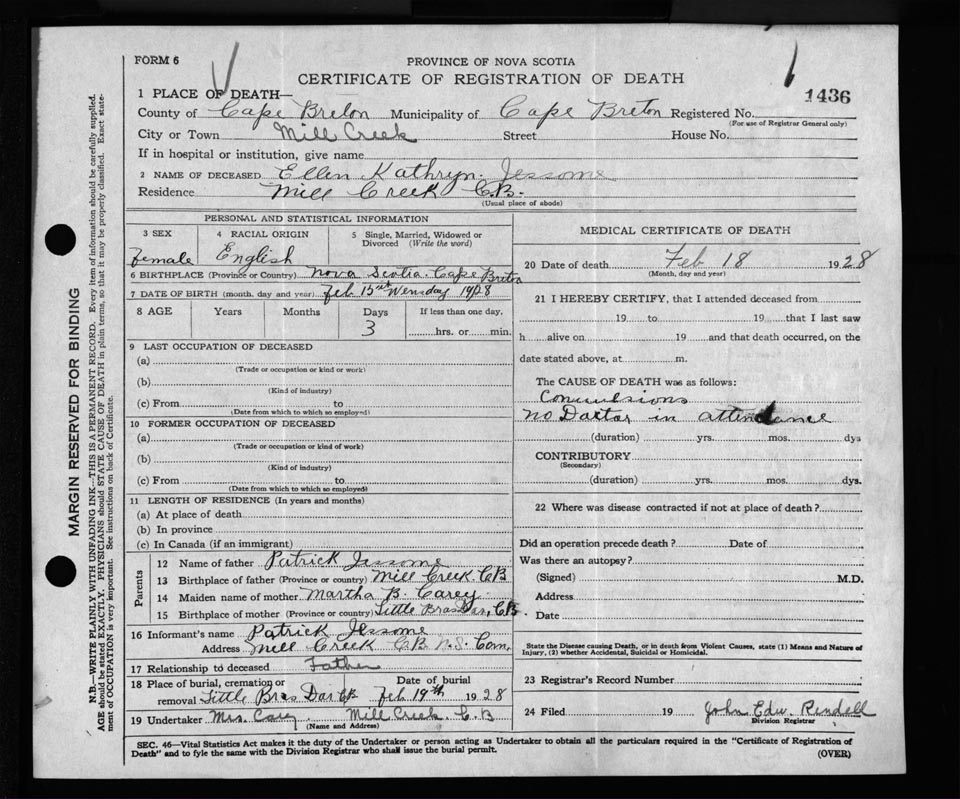 FORM 6
PROVINCE OF NOVA SCOTIA
CERTIFICATE OF REGISTRATION OF DEATH
1436
1 PLACE OF DEATH—
County of Cape Breton Municipality of Cape Breton Registered No.
(For use of Registrar General only)
City or Town Mill Creek Street House No.
If in hospital or institution, give name
2 NAME OF DECEASED Ellen Kathryn Jessome
Residence Mill Creek C.B.
(Usual place of abode)
PERSONAL AND STATISTICAL INFORMATION
3 SEX 4 RACIAL ORIGIN 5 Single, Married, Widowed or Divorced (Write the word)
Female English
6 BIRTHPLACE (Province or Country) Nova Scotia Cape Breton
7 DATE OF BIRTH (month, day and year) Feb 15st Wensday 1928
8 AGE Years Months Days If less than one day,
3 hrs. or min.
9 LAST OCCUPATION OF DECEASED
(a)
(Trade or occupation or kind or work)
(b)
(Kind of industry)
(c) From to
(Date from which to which so employed)
10 FORMER OCCUPATION OF DECEASED
(a)
(Trade or occupation or kind of work)
(b)
(Kind of industry)
(c) From to
(Date from which to which so employed)
11 LENGTH OF RESIDENCE (In years and months)
(a) At place of death
(b) In province
(c) In Canada (if an immigrant)
Parents
12 Name of father Patrick Jessome
13 Birthplace of father (Province or country) Mill Creek. CB
14 Maiden name of mother Martha B. Carey
15 Birthplace of mother (Province or country) Little Bras Dar, CB.
16 Informant's name Patrick Jessome
Address Mill Creek C.B. N.S. Can,
17 Relationship to deceased Father
18 Place of burial, cremation or removal Little Bras Dar CB Date of burial Feb 19th, 1928
19 Undertaker Mrs. Carey Mill Creek C.B
(Name and Address)
MEDICAL CERTIFICATE OF DEATH
20 Date of death Feb 18 1928
(Month, day and year)
21 I HEREBY CERTIFY, that I attended deceased from
19 to 19 that I last saw
h alive on 19 and that death occurred, on the
date stated above, at m.
The CAUSE OF DEATH was as follows:
Convulsions
no Doctor in attendance
(duration) yrs. mos. dys
CONTRIBUTORY
(Secondary)
(duration) yrs. mos. dys.
22 Where was disease contracted if not at place of death?
Did an operation precede death? Date of
Was there an autopsy?
(Signed) M.D.
Address
Date
State the Disease causing Death, or in death from Violent Causes, state (1) Means and Nature of
Injury, (2) whether Accidental, Suicidal or Homicidal.
23 Registrar's Record Number
24 Filed 19 John Edw. Rendell
Division Registrar
SEC. 46—Vital Statistics Act makes it the duty of the Undertaker or person acting as Undertaker to obtain all the particulars required in the "Certificate of Registration of
Death" and to fyle the same with the Division Registrar who shall issue the burial permit.
(OVER)
MARGIN RESERVED FOR BINDING
N.B.—WRITE PLAINLY WITH UNFADING INK—THIS IS A PERMANENT RECORD. Every item of information should be carefully supplied.
AGE should be stated EXACTLY. PHYSICIANS should STATE CAUSE OF DEATH in plain terms, so that it may be properly classified. Exact state-
ment of OCCUPATION is very important. See instructions on back of Certificate.